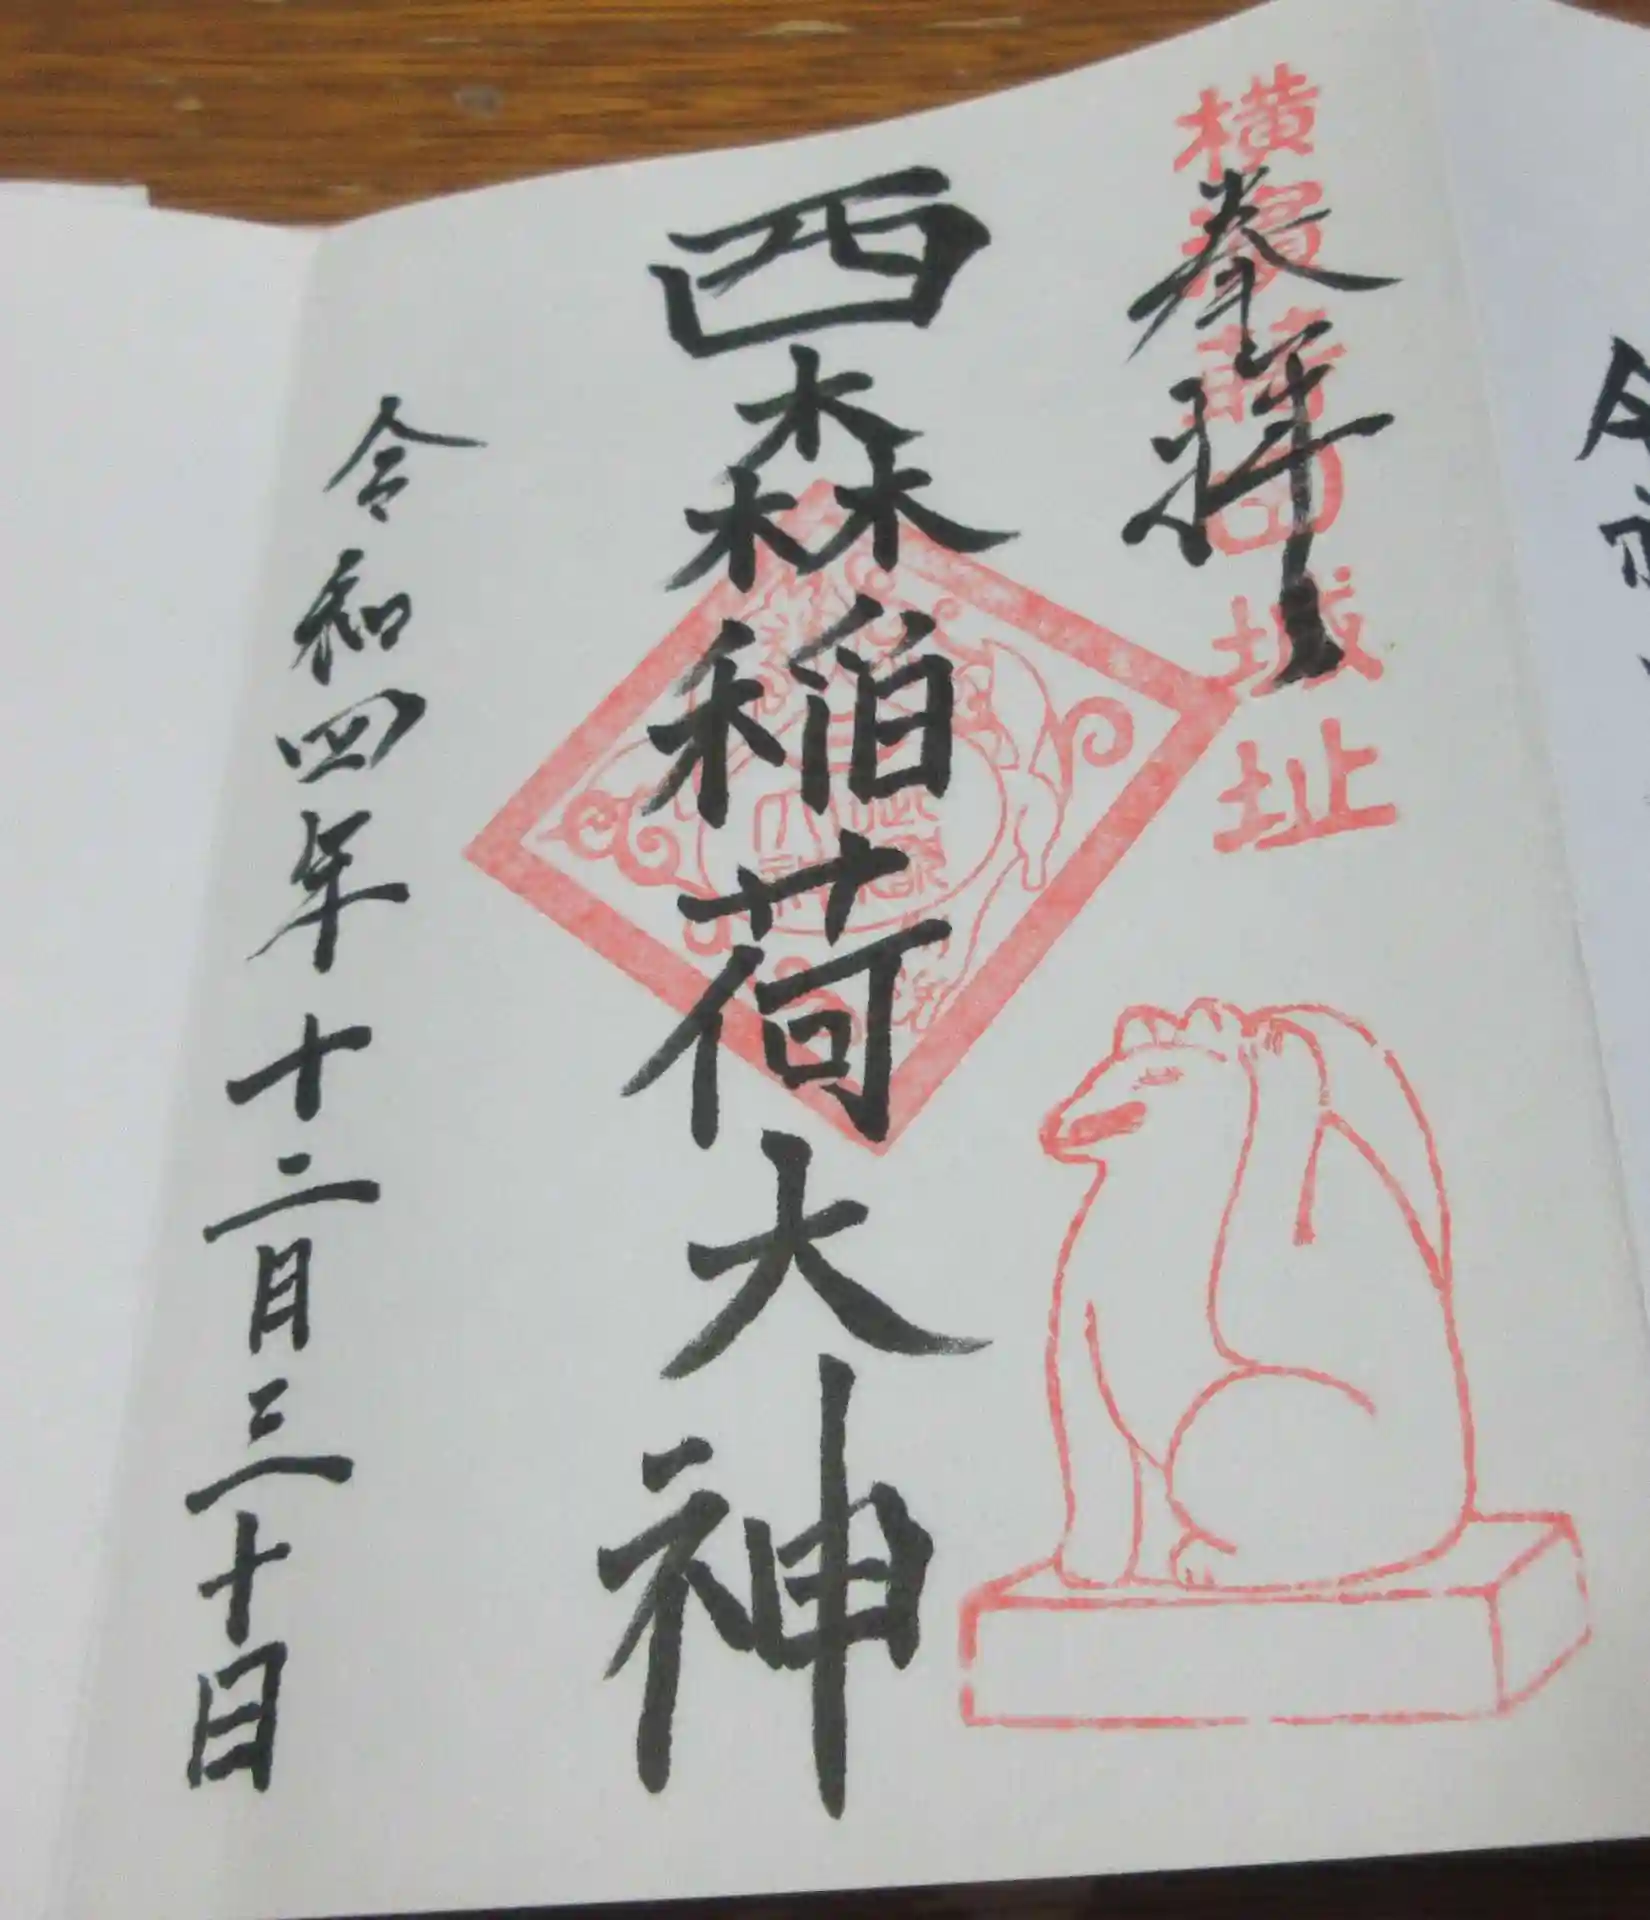 横濱蒔田城址
奉拝
西森稲荷大神
令和四年十二月三十日